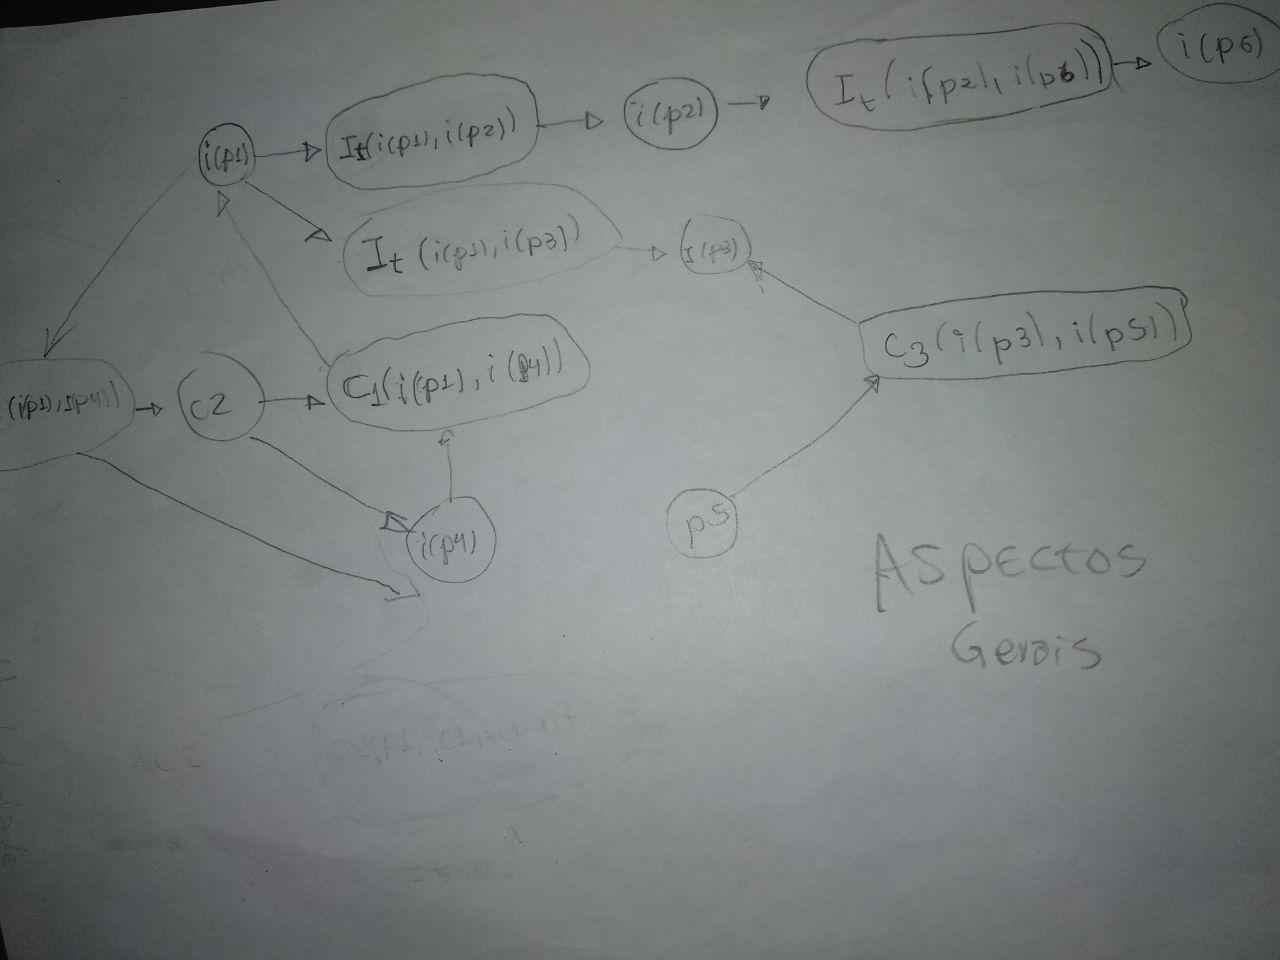 i(p6)
It(i(p2), i(p6))
i(p2)
It(i(p1), i(p2))
i(p1)
It (i(p1), i(p3))
I(p3)
C3(i(p3), i(p5))
C1(i(p1), i(p4))
(i(p1), I(p4))
C2
i(p4)
p5
Aspectos
Gerais